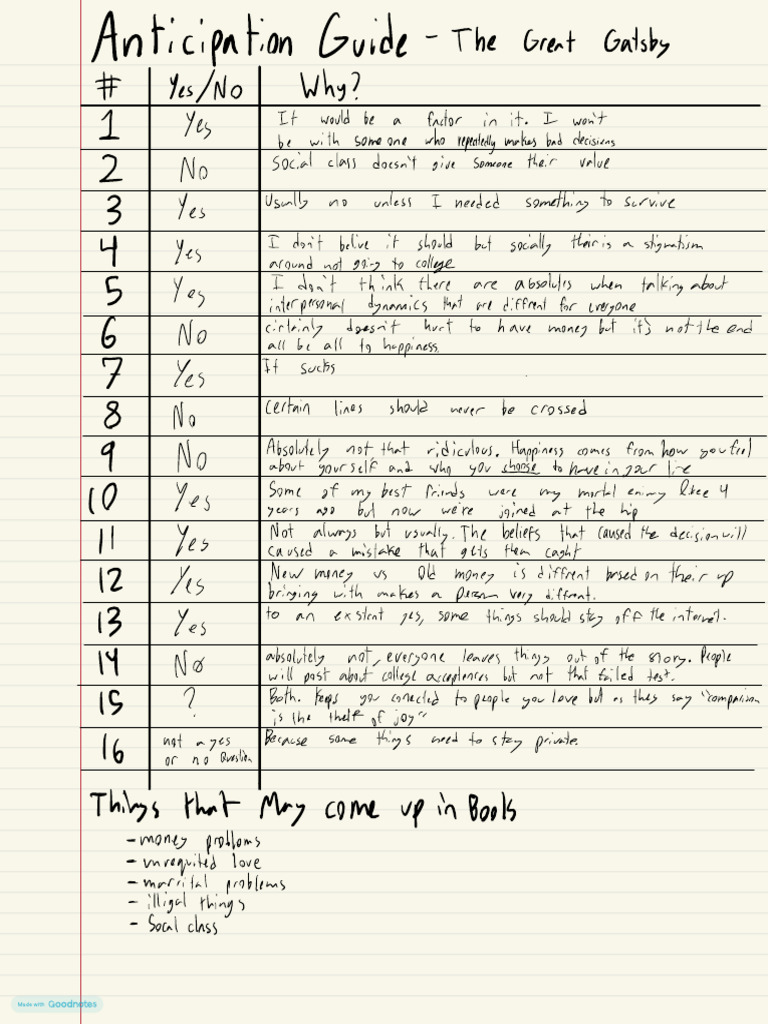 Anticipation Guide - The Great Gatsby
# Yes/No Why?
1 Yes It would be a factor in it. I won't
be with someone who repeatedly makes bad decisions
2 No Social class doesn't give someone their value
3 Yes Usually no unless I needed something to survive
4 Yes I don't belive it should but socially their is a stigmatism
around not going to college
5 Yes I don't think there are absolutes when talking about
interpersonal dynamics that are diffrent for everyone
6 No cirtainly doesn't hurt to have money but it's not the end
all be all to happiness.
7 Yes It sucks
8 No Certain lines should never be crossed
9 No Absolutely not that ridiculous. Happiness comes from how you feel
about yourself and who you choose to have in your life
10 Yes Some of my best friends were my mortal enimy like 4
years ago but now we're joined at the hip
11 Yes Not always but usually. The beliefs that caused the decision will
caused a mistake that gets them caght
12 Yes New money vs Old money is diffrent based on their up
bringing with makes a person very diffrent.
13 Yes to an exstent yes, some things should stay off the internet.
14 No absolutely not, everyone leaves things out of the story. People
will post about college acceptences but not that failed test.
15 ? Both. Keeps you conected to people you love but as they say "comparison
is the theft of joy"
16 not a yes
or no Question Because some things need to stay private.
Things that May come up in Books
- money problems
- unrequited love
- marrital problems
- illigal things
- Socal class
Made with Goodnotes